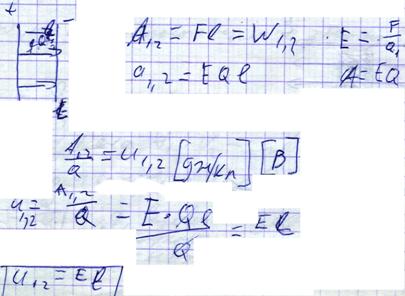 + -
A₁,₂ = Fl = W₁,₂ · E = F/q₁
a₁,₂ = EQl A = EQ
E
A₁,₂/a = U₁,₂ [дж/кл] [В]
u₁,₂ = A₁,₂/Q = E·Ql/Q = El
U₁,₂ = El